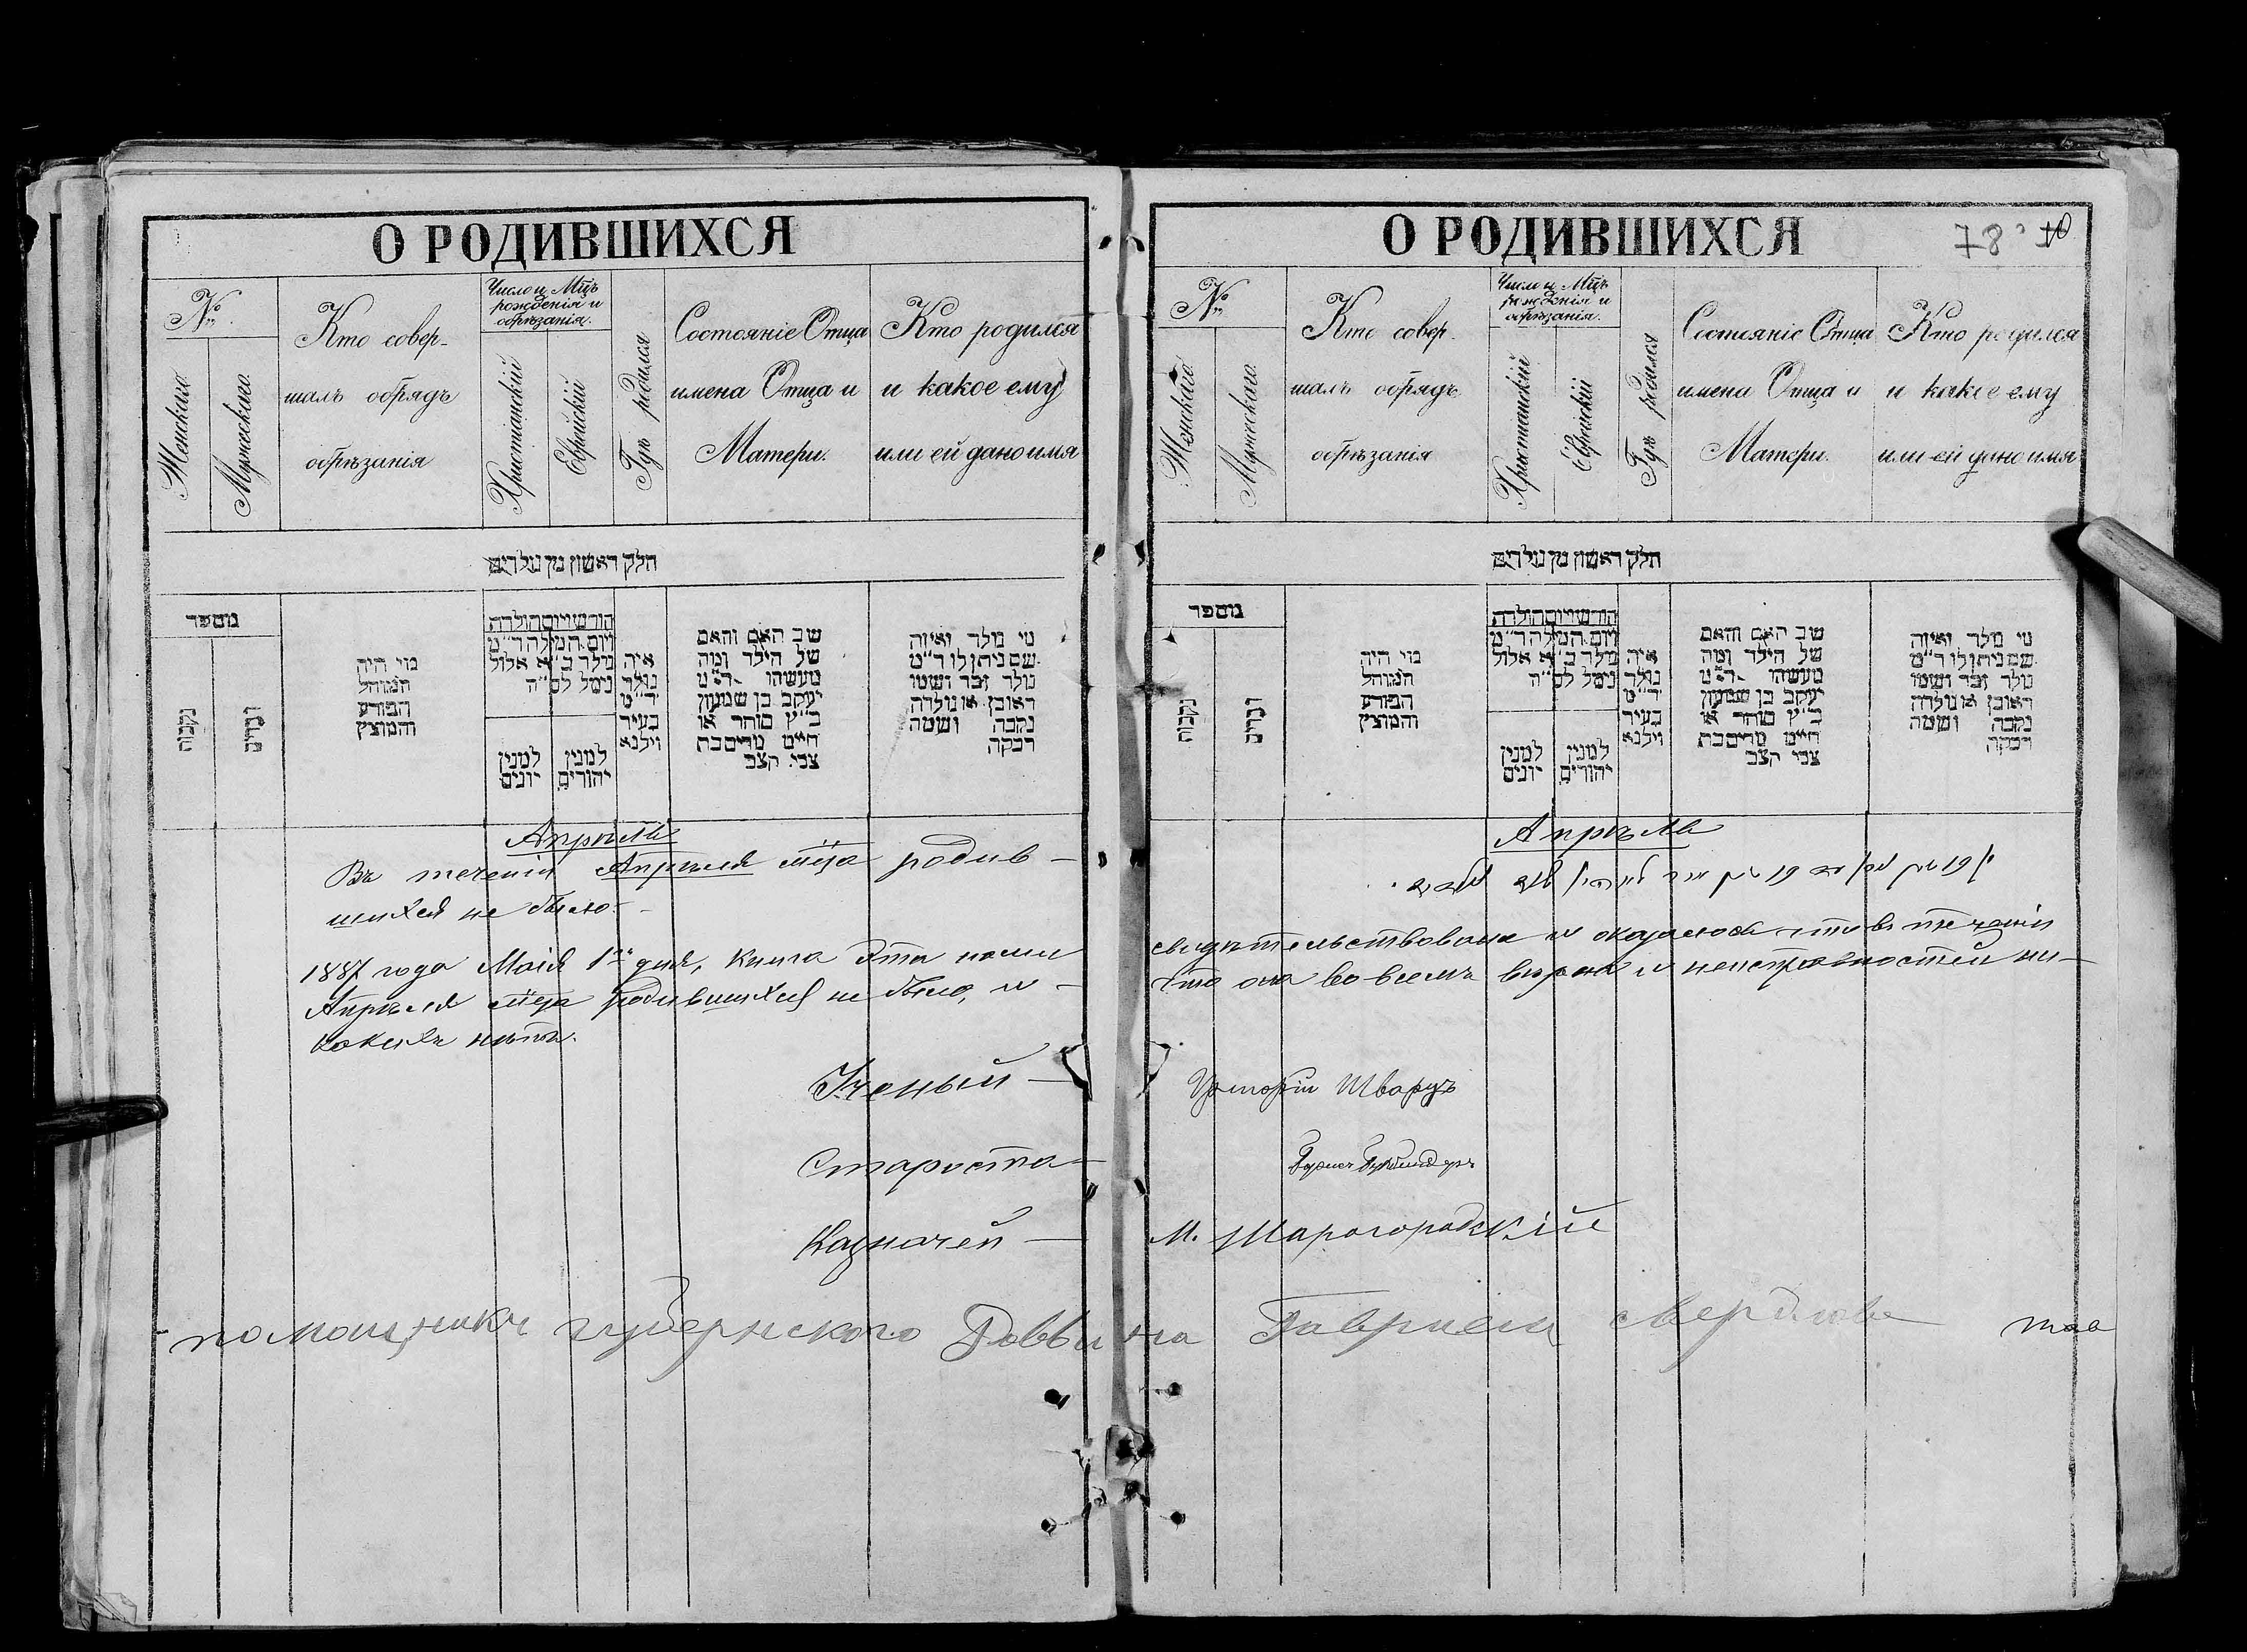 О РОДИВШИХСЯ
№
Женскаго.
Мужескаго.
Кто совер-
шалъ обрядъ
обрѣзанія
Число и Мцъ
рожденія и
обрѣзанія.
Христіанскій
Еврейскій
Гдѣ родился
Состояніе Отца
имена Отца и
Матери.
Кто родился
и какое ему
или ей дано имя
חלק ראשון מן נולדים
מספר
נקבות
זכרים
מי היה
המוהל
הפורע
והמוצץ
חודש ויום הולדה
ויום המילה ד״מ
נולד ב״א אלול
נימל לס״ה
למנין
יונים
למנין
יהודים
איה
נולד
ד״מ
בעיר
וילנא
שב האם והאם
של הילד ומה
מעשהו ד״מ
יעקב בן שמעון
כ״ץ סוחר או
חייט מרים בת
צבי קצב
מי נולד ואיזה
שם ניתן לו ד״מ
נולד זכר ושמו
ראובן או נולדה
נקבה ושמה
רבקה
Апрѣль
Въ теченіи Апрѣля мца родив-
шихся не было.
1887 года Маія 1го дня, книга эта нами
Апрѣля мца родившихся не было, и
какихъ нѣтъ.
Ученый
Староста
Казначей
помощникъ губернскаго Равви
О РОДИВШИХСЯ
78
№
Женскаго.
Мужескаго.
Кто совер-
шалъ обрядъ
обрѣзанія
Число и Мцъ
рожденія и
обрѣзанія.
Христіанскій
Еврейскій
Гдѣ родился
Состояніе Отца
имена Отца и
Матери.
Кто родился
и какое ему
или ей дано имя
חלק ראשון מן נולדים
מספר
נקבות
זכרים
מי היה
המוהל
הפורע
והמוצץ
חודש ויום הולדה
ויום המילה ד״מ
נולד ב״א אלול
נימל לס״ה
למנין
יונים
למנין
יהודים
איה
נולד
ד״מ
בעיר
וילנא
שב האם והאם
של הילד ומה
מעשהו ד״מ
יעקב בן שמעון
כ״ץ סוחר או
חייט מרים בת
צבי קצב
מי נולד ואיזה
שם ניתן לו ד״מ
נולד זכר ושמו
ראובן או נולדה
נקבה ושמה
רבקה
Апрѣль
свидѣтельствована и оказалось что въ теченіи
что она во всемъ вѣрна и неисправностей ни-
Григорій Шварцъ
М. Шарогородскій
на Гавріелъ Свердловъ